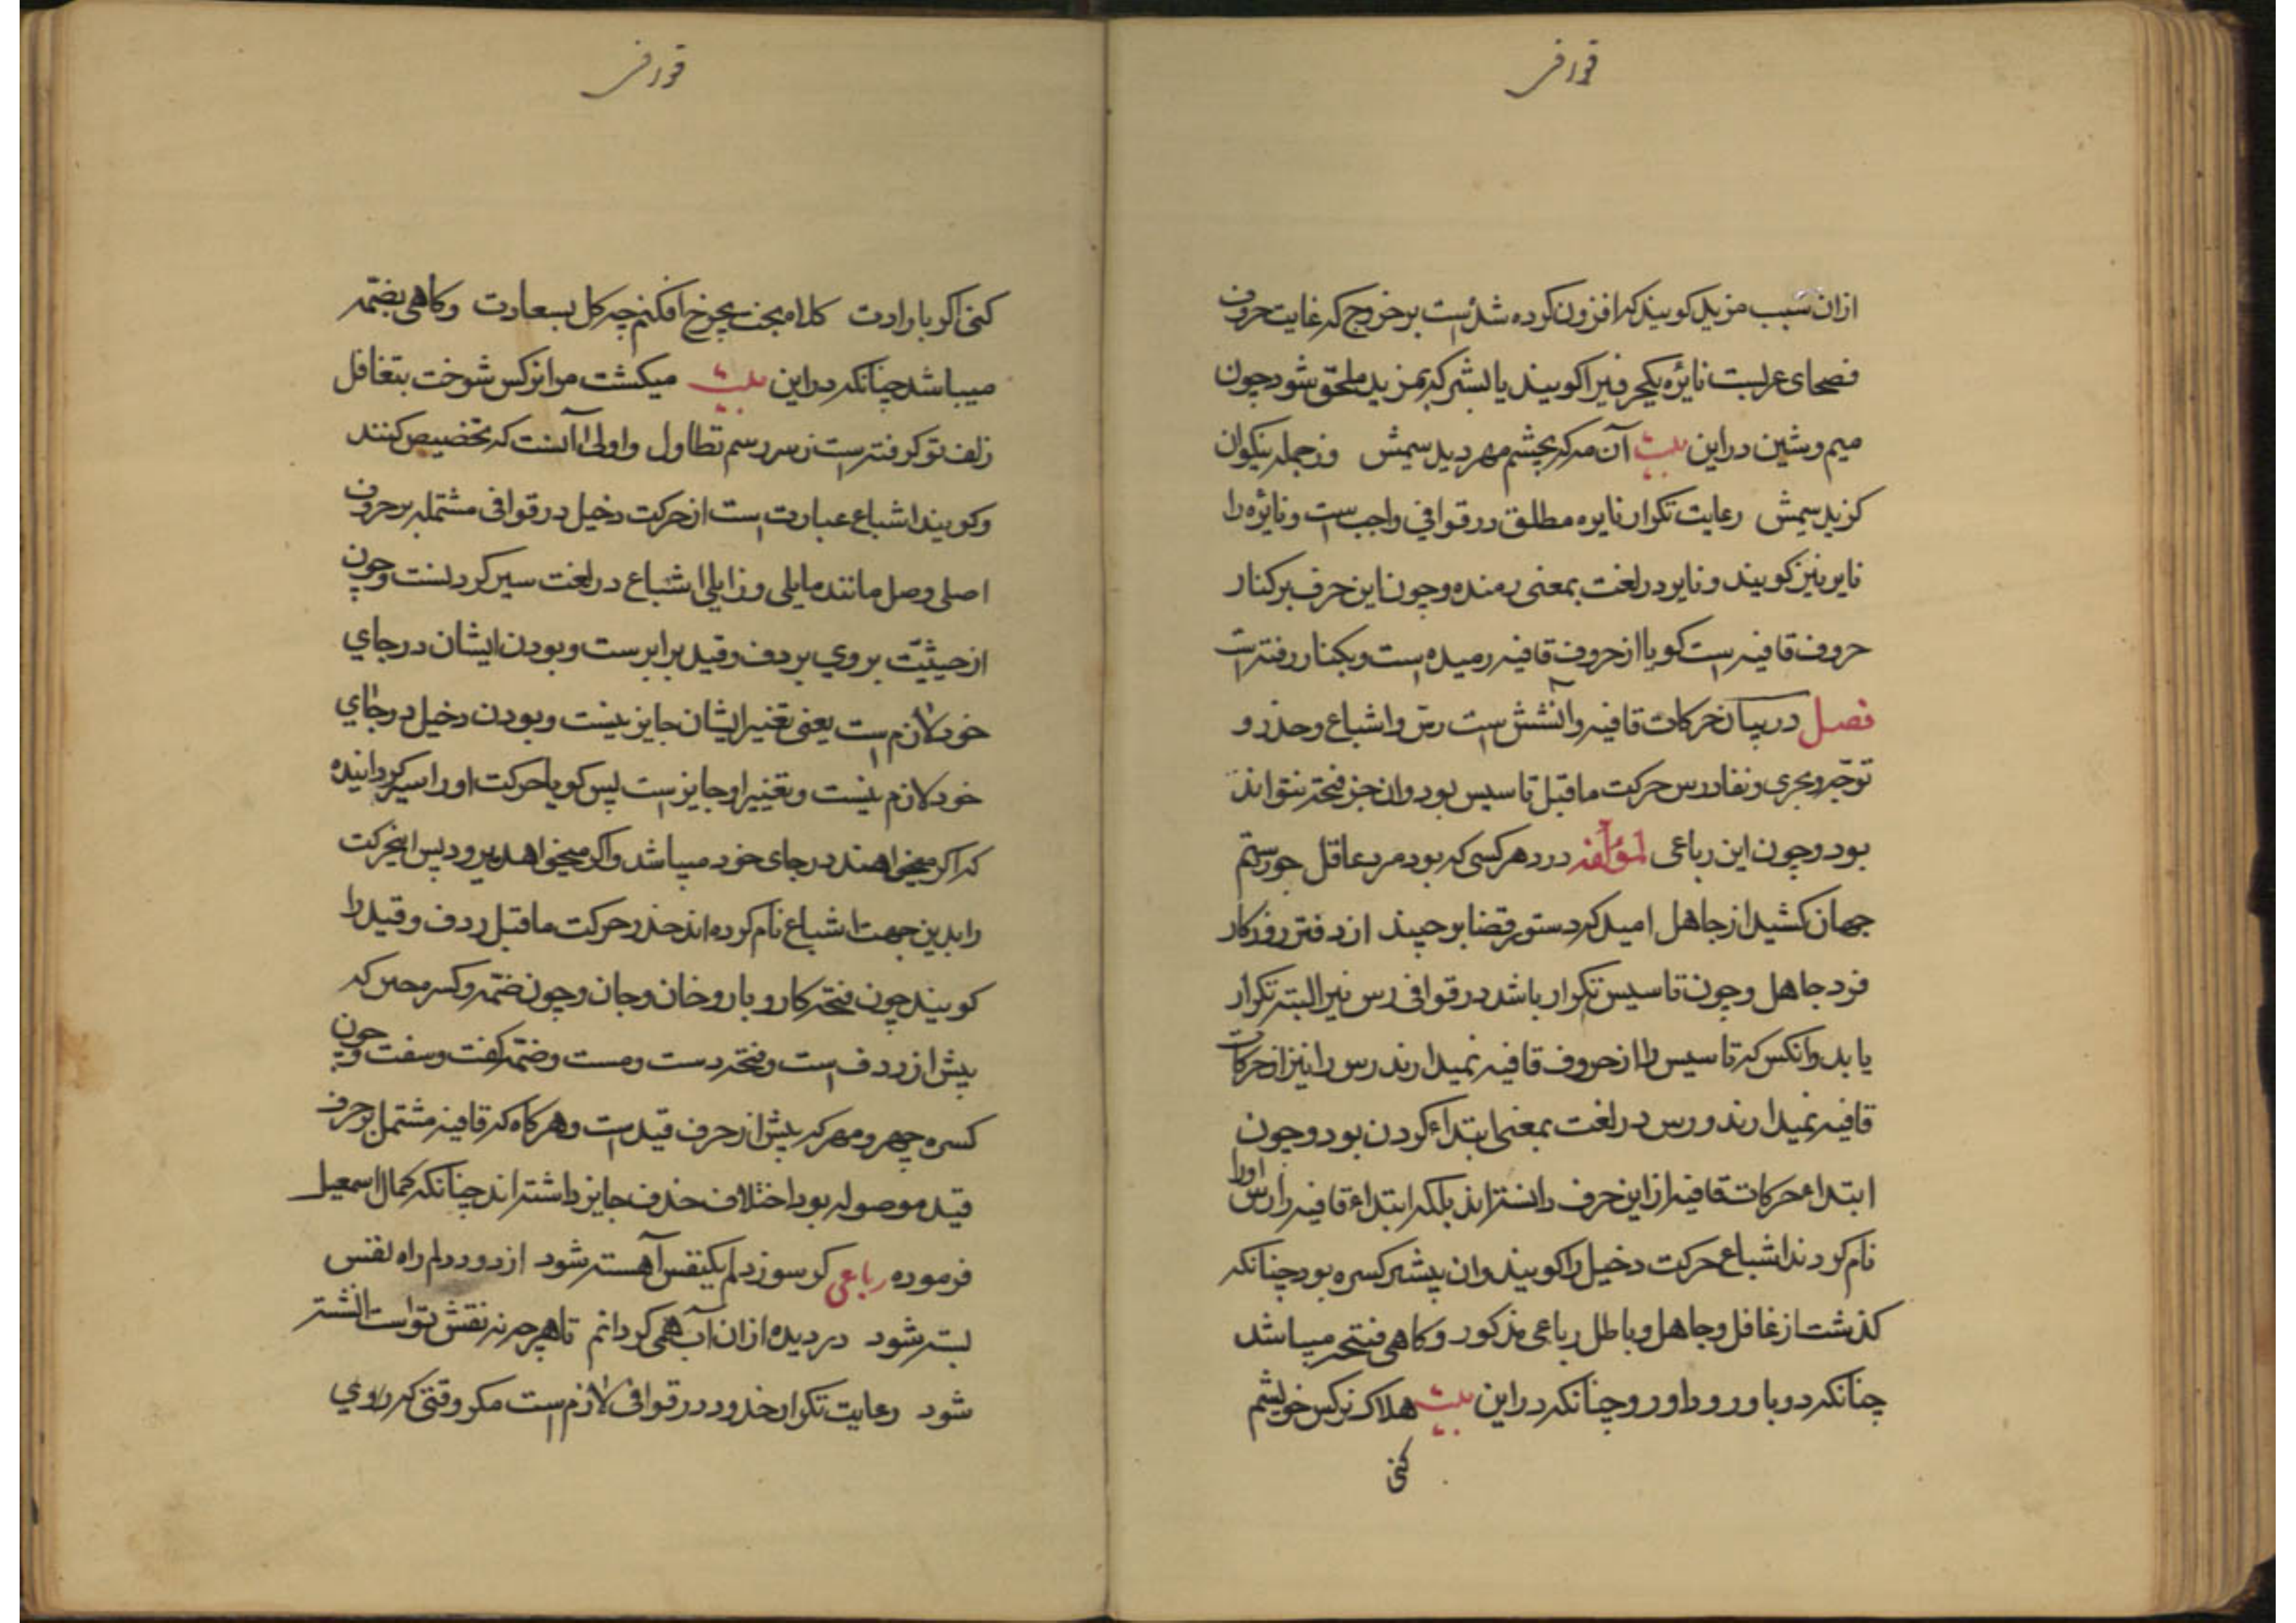 قوافی
ازان سبب مزید کویند که افزون کرده شده است بر خروج که غایت حروف
فصحای عربست نایره یکحرفیرا کویند یا بیشتر که بمزید ملحق شود چون
میم و شین در این بیت آن مه که بچشم مهر دیدیمش وز جمله نیکوان
کزیدیمش رعایت تکرار نایره مطلق در قوافی واجب است و نایره را
نایر نیز کویند و نایر در لغت بمعنی رمنده و چون این حرف بر کنار
حروف قافیه است کویا از حروف قافیه رمیده است و بکنار رفته است
فصل در بیان حرکات قافیه وآن شش است رس و اشباع و حذو و
توجیه و مجری و نفاد رس حرکت ماقبل تاسیس بود وان جز فتحه نتواند
بود و چون این رباعی لمؤلفه در دهر کسی که بود مرد عاقل جور ستم
جهان کشید از جاهل امید کرد ستور قضا بر چیند از دفتر روزکار
فرد جاهل و چون تاسیس تکرار باشد در قوافی رس نیز البته تکرار
یابد وانکس که تاسیس را از حروف قافیه نمیدارند رس را نیز از حرکات
قافیه نمیدارند و رس در لغت بمعنی ابتداء کردن بود و چون
ابتداء حرکات قافیه از این حرف دانسته اند بلکه ابتداء قافیه را رس اورا
نام کردند اشباع حرکت دخیل را کویند وان بیشتر کسره بود چنانکه
کذشت از غافل و جاهل و باطل رباعی مذکور و کاهی فتحه میباشد
چنانکه در باور و داور و چنانکه در این بیت هلاک نرکس خویشم
کنی
قوافی
کنی اکر بارادت کلاه بخت بچرخ افکنم چه کل بسعادت و کاهی بضمه
میباشد چنانکه در این بیت میکشت مرا نرکس شوخت بتغافل
زلف تو کرفته است ز سر رسم تطاول و اولی آنست که تخصیص کنند
و کویند اشباع عبارت است از حرکت دخیل در قوافی مشتمله بر حروف
اصلی وصل مانند مایلی و زایلی اشباع در لغت سیر کردنست و چون
از حیثیت بروی بر دف و قید برابرست و بودن ایشان در جای
خود لازم است یعنی تغییر ایشان جایز نیست و بودن دخیل در جای
خود لازم نیست و تغییر او جایز است پس کویا حرکت او را سیر کردانیده
که اکر میخواهند در جای خود میباشد و اکر میخواهد میرود پس اینحرکت
را بدین جهت اشباع نام کرده اند حذو حرکت ماقبل ردف و قید را
کویند چون فتحه کار و بار و خان و جان و چون ضمه و کسره که
پیش از ردف است و فتحه دست و مست و ضمه کفت و سفت و چون
کسره چهر و مهر که پیش از حرف قید است و هر کاه که قافیه مشتمل بر حرف
قید موصوله بود اختلاف حذف جایز داشته اند چنانکه کمال اسمعیل
فرموده رباعی کر سوز دلم یکنفس آهسته شود از دود دلم راه نفس
بسته شود در دیده از ان آب همی کردانم تا هر چه نه نقش تو است شسته
شود رعایت تکرار حذو در قوافی لازم است مکر وقتی که روی